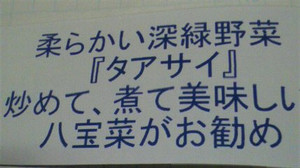 柔らかい深緑野菜
『タアサイ』
炒めて、煮て美味しい
八宝菜がお勧め